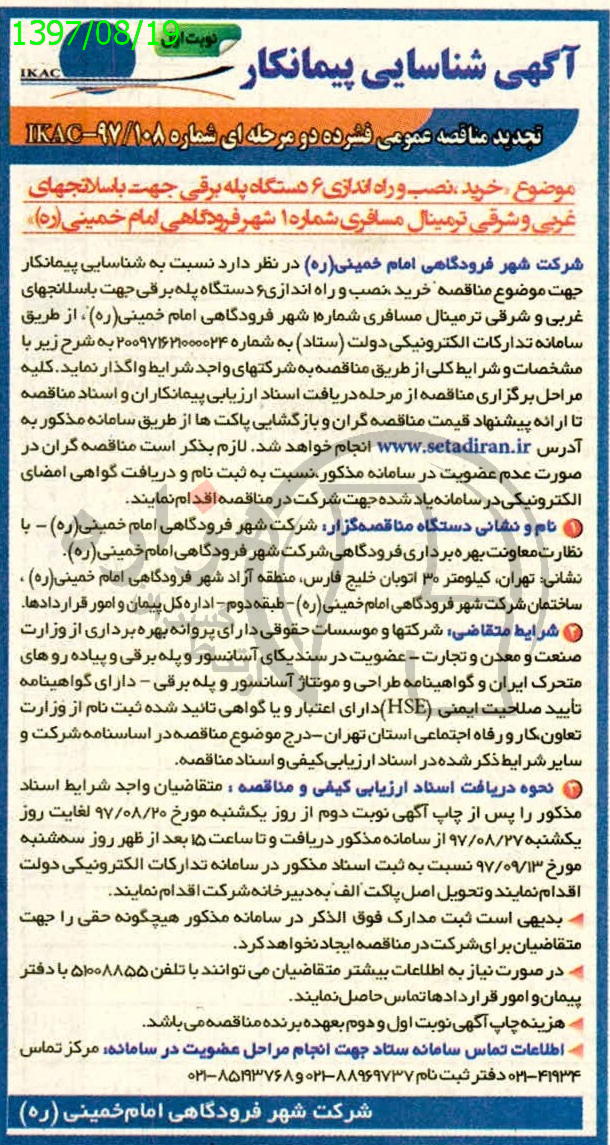 1397/08/19
نوبت اول
IKAC
آگهی شناسایی پیمانکار
تجدید مناقصه عمومی فشرده دو مرحله ای شماره IKAC-۹۷/۱۰۸
موضوع «خرید، نصب و راه اندازی ۶ دستگاه پله برقی جهت باسلانجهای
غربی و شرقی ترمینال مسافری شماره ۱ شهر فرودگاهی امام خمینی (ره)»
شرکت شهر فرودگاهی امام خمینی(ره) در نظر دارد نسبت به شناسایی پیمانکار
جهت موضوع مناقصه "خرید، نصب و راه اندازی ۶ دستگاه پله برقی جهت باسلانجهای
غربی و شرقی ترمینال مسافری شماره۱ شهر فرودگاهی امام خمینی (ره)"، از طریق
سامانه تدارکات الکترونیکی دولت (ستاد) به شماره ۲۰۰۹۷۱۶۲۱۰۰۰۰۲۴ به شرح زیر با
مشخصات و شرایط کلی از طریق مناقصه به شرکتهای واجد شرایط واگذار نماید. کلیه
مراحل برگزاری مناقصه از مرحله دریافت اسناد ارزیابی پیمانکاران و اسناد مناقصه
تا ارائه پیشنهاد قیمت مناقصه گران و بازگشایی پاکت ها از طریق سامانه مذکور به
آدرس www.setadiran.ir انجام خواهد شد. لازم بذکر است مناقصه گران در
صورت عدم عضویت در سامانه مذکور، نسبت به ثبت نام و دریافت گواهی امضای
الکترونیکی در سامانه یاد شده جهت شرکت در مناقصه اقدام نمایند.
۱ نام و نشانی دستگاه مناقصه‌گزار: شرکت شهر فرودگاهی امام خمینی(ره) - با
نظارت معاونت بهره برداری فرودگاهی شرکت شهر فرودگاهی امام خمینی (ره).
نشانی: تهران، کیلومتر ۳۰ اتوبان خلیج فارس، منطقه آزاد شهر فرودگاهی امام خمینی (ره) ،
ساختمان شرکت شهر فرودگاهی امام خمینی (ره) - طبقه دوم - اداره کل پیمان و امور قراردادها.
۲ شرایط متقاضی: شرکتها و موسسات حقوقی دارای پروانه بهره برداری از وزارت
صنعت و معدن و تجارت - عضویت در سندیکای آسانسور و پله برقی و پیاده رو های
متحرک ایران و گواهینامه طراحی و مونتاژ آسانسور و پله برقی - دارای گواهینامه
تأیید صلاحیت ایمنی (HSE) دارای اعتبار و یا گواهی تائید شده ثبت نام از وزارت
تعاون، کار و رفاه اجتماعی استان تهران - درج موضوع مناقصه در اساسنامه شرکت و
سایر شرایط ذکر شده در اسناد ارزیابی کیفی و اسناد مناقصه.
۳ نحوه دریافت اسناد ارزیابی کیفی و مناقصه : متقاضیان واجد شرایط اسناد
مذکور را پس از چاپ آگهی نوبت دوم از روز یکشنبه مورخ ۹۷/۰۸/۲۰ لغایت روز
یکشنبه ۹۷/۰۸/۲۷ از سامانه مذکور دریافت و تا ساعت ۱۵ بعد از ظهر روز سه‌شنبه
مورخ ۹۷/۰۹/۱۳ نسبت به ثبت اسناد مذکور در سامانه تدارکات الکترونیکی دولت
اقدام نمایند و تحویل اصل پاکت "الف" به دبیرخانه شرکت اقدام نمایند.
بدیهی است ثبت مدارک فوق الذکر در سامانه مذکور هیچگونه حقی را جهت
متقاضیان برای شرکت در مناقصه ایجاد نخواهد کرد.
در صورت نیاز به اطلاعات بیشتر متقاضیان می توانند با تلفن ۵۱۰۰۸۸۵۵ با دفتر
پیمان و امور قراردادها تماس حاصل نمایند.
هزینه چاپ آگهی نوبت اول و دوم بعهده برنده مناقصه می باشد.
اطلاعات تماس سامانه ستاد جهت انجام مراحل عضویت در سامانه: مرکز تماس
۰۲۱-۴۱۹۳۴ دفتر ثبت نام ۰۲۱-۸۸۹۶۹۷۳۷ و ۰۲۱-۸۵۱۹۳۷۶۸
شرکت شهر فرودگاهی امام‌خمینی (ره)